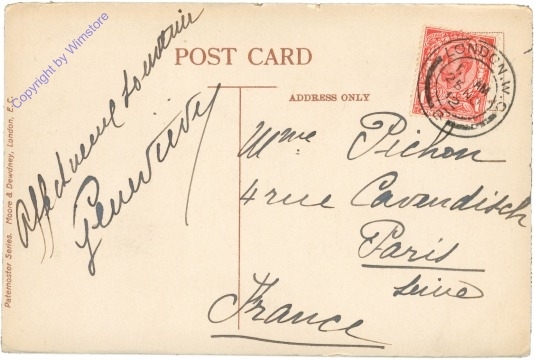 Copyright by Wimstore
POST CARD
ADDRESS ONLY
LONDON.W.C
25
12
Affectueux souvenir
Geneviève
Mme Pichon
4 rue Cavendisch
Paris
Seine
France
Paternoster Series. Moore & Dewdney, London, E.C.